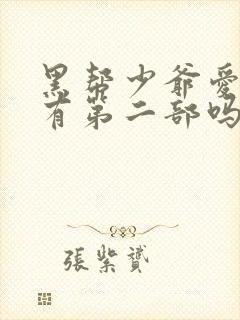 黑帮少爷爱
有第二部吗
張紫贇